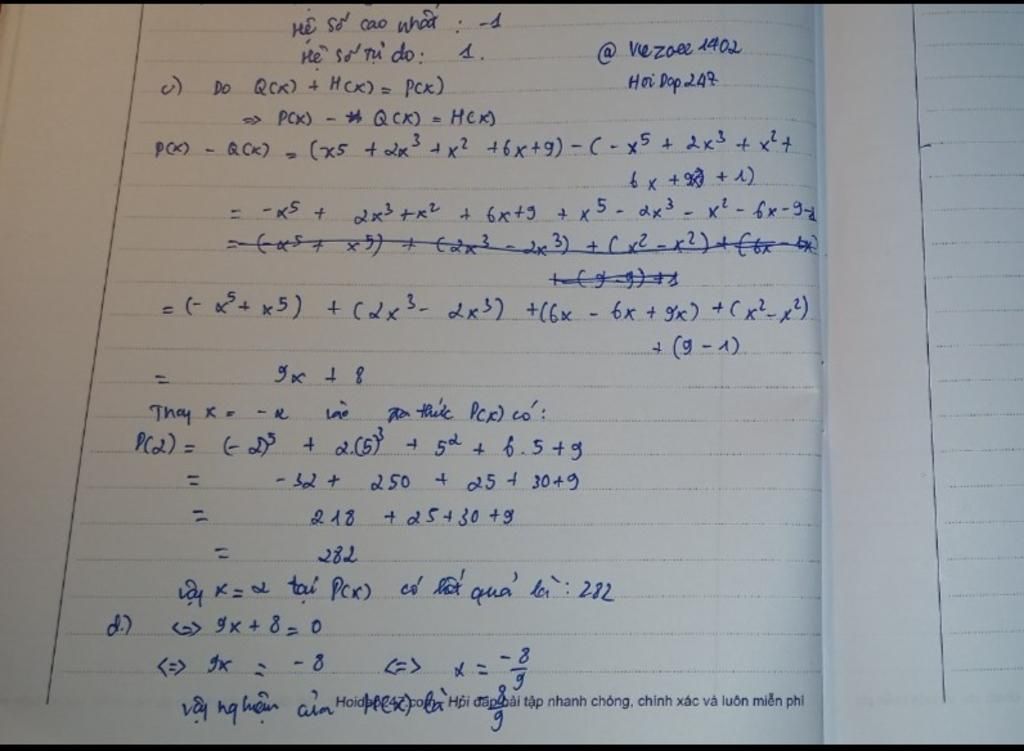 Hệ số cao nhất : -1
Hệ số tự do : 1.
@ Vezoee 1402
Hoi Dap 247
c) Do Q(x) + H(x) = P(x)
=> P(x) - Q(x) = H(x)
P(x) - Q(x) = (x⁵ + 2x³ + x² + 6x + 9) - (- x⁵ + 2x³ + x² +
6x + 9x + 1)
= -x⁵ + 2x³ + x² + 6x + 9 + x⁵ - 2x³ - x² - 6x - 9 - 1
= (-x⁵ + x⁵) + (2x³ - 2x³) + (x² - x²) + (6x - 6x)
+ (9 - 9) + 1
= (- x⁵ + x⁵) + (2x³ - 2x³) + (6x - 6x + 9x) + (x² - x²)
+ (9 - 1)
= 9x + 8
Thay x = -2 vào đa thức P(x) có :
P(2) = (-2)⁵ + 2.(5)³ + 5² + 6 . 5 + 9
= -32 + 250 + 25 + 30 + 9
= 218 + 25 + 30 + 9
= 282
vậy x = 2 tại P(x) có kết quả là : 282
d.) <=> 9x + 8 = 0
<=> 9x = -8 <=> x = -8/9
vậy nghiệm của H(x) là -8/9
Hoidap247.com - Hỏi đáp bài tập nhanh chóng, chính xác và luôn miễn phí